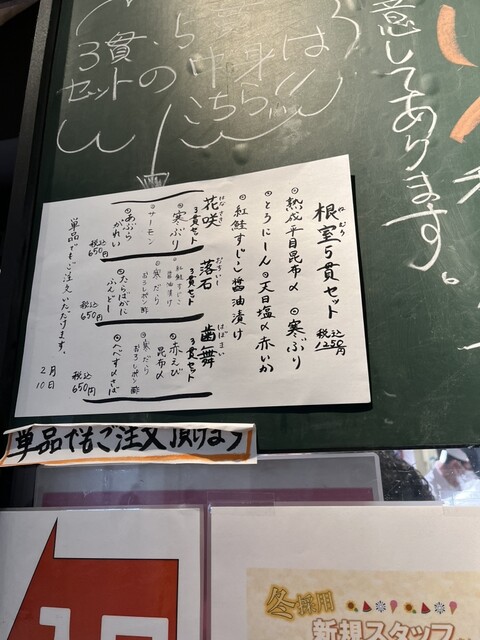 意してあります。
３貫・５
セットの中身は
こちら!!
根室５貫セット
ねむろ
税込
1250円
◎熟成平目昆布〆 ◎寒ぶり
◎とろにしん ◎天日塩〆赤いか
◎紅鮭すじこ醤油漬け
花咲
はなさき
３貫セット
◎寒ぶり
◎サーモン
◎あぶら
がれい
税込
650円
落石
おちいし
３貫セット
◎紅鮭すじこ
醤油漬け
◎寒だら
おろしポン酢
◎たらばがに
ふんどし
税込
650円
歯舞
はぼまい
３貫セット
◎赤えび
昆布〆
◎寒だら
おろしポン酢
◎へべす〆さば
税込
650円
単品でもご注文いただけます。
2月
10日
単品でもご注文頂けます
冬採用
新規スタッフ